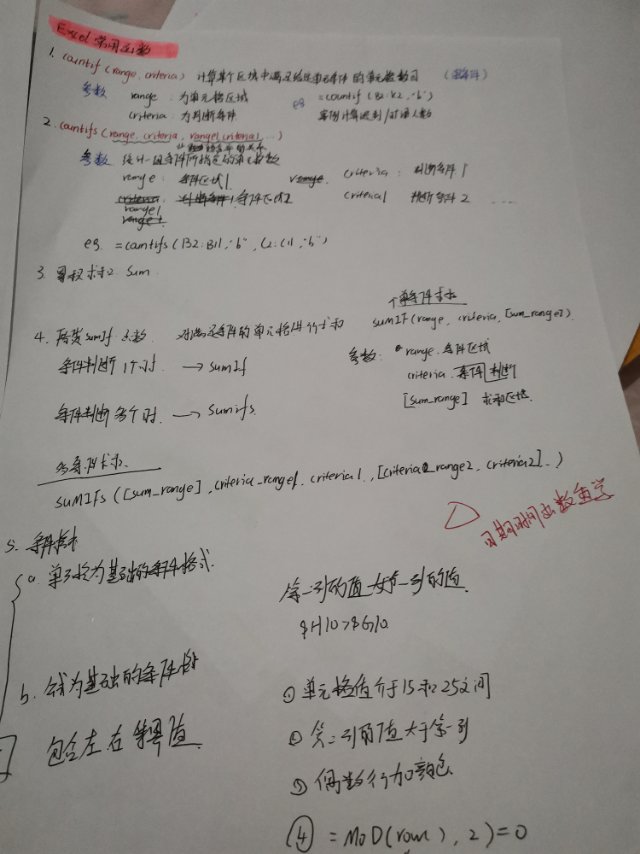 Excel 常用函数
1. countif (range, criteria) 计算某个区域中满足给定条件的单元格数目 (单条件)
参数 range : 为单元格区域 eg =countif (B2:K2, "b")
criteria : 为判断条件
2. countifs (range, criteria, range1, criteria1, ...)
参数 统计一组条件所指定的单元格数
range : 条件区域1 criteria : 判断条件1
range1 条件区域2 criteria1 判断条件2 ....
eg =countifs (B2:B11, "b", C2:C11, "b")
3. sum
4. sumIf 函数 对满足条件的单元格进行求和
单条件求和
sumIF(range, criteria, [sum_range])
条件判断1个时 → sumIf
参数: range 条件区域
criteria 条件判断
[sum_range] 求和区域
条件判断多个时 → sumifs
多条件求和
sumIFs ([sum_range], criteria_range1, criteria1, [criteria_range2, criteria2]...)
日期时间函数
5. 条件格式
a 单元格为基础的条件格式
第一列的值 第一列的值
$H10>$G10
b. 为基础的条件格式
① 单元格值介于15和25之间
包含左右 值
② 第二列的值大于第一列
③ 偶数行加颜色
④ =MOD(row( ), 2)=0